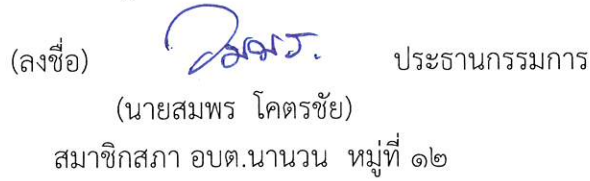 (ลงชื่อ) ประธานกรรมการ
(นายสมพร โคตรชัย)
สมาชิกสภา อบต.นานวน หมู่ที่ ๑๒